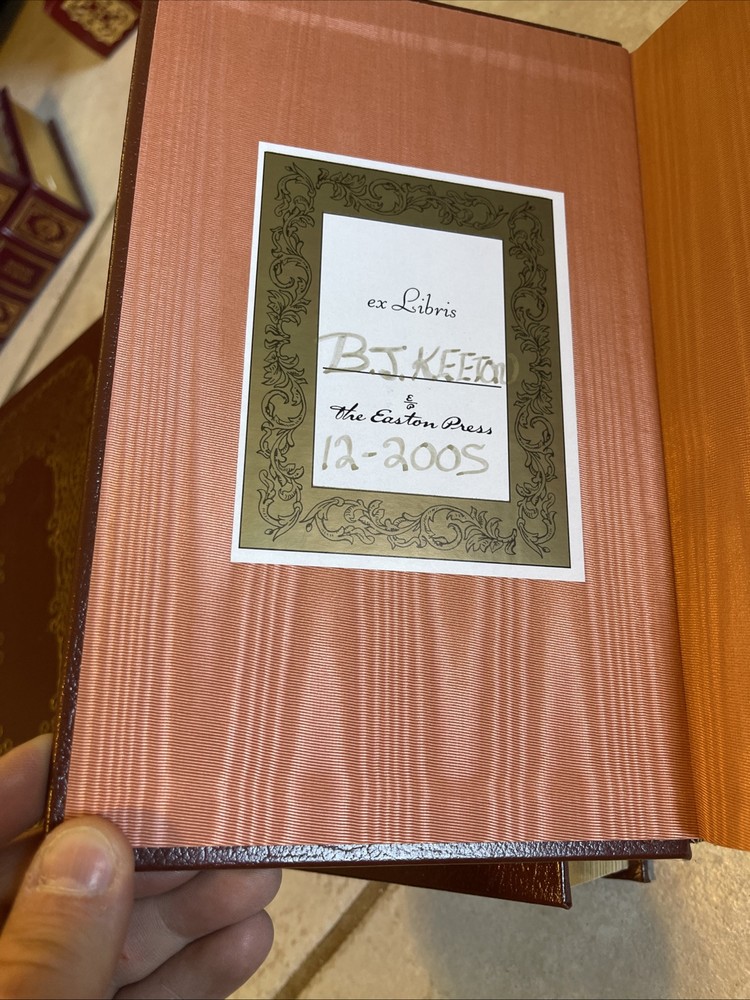 ex Libris
B.J. KEETON
E
P
the Easton Press
12-2005